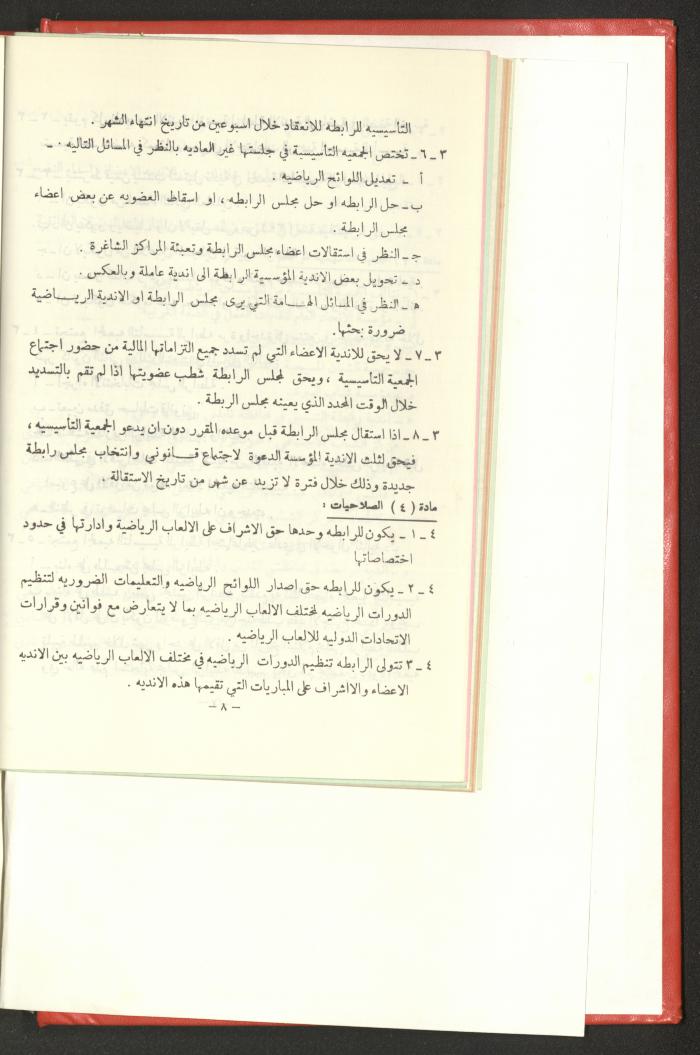 التأسيسيه للرابطه للانعقاد خلال اسبوعين من تاريخ انتهاء الشهر .
٣ ـ ٦ ـ تختص الجمعيه التأسيسية في جلستها غير العاديه بالنظر في المسائل التاليه ٠ ـ
أ ـ تعديل اللوائح الرياضيه .
ب ـ حل الرابطه او حل مجلس الرابطه ، او اسقاط العضويه عن بعض اعضاء
مجلس الرابطة .
جـ ـ النظر في استقالات اعضاء مجلس الرابطة وتعبئة المراكز الشاغرة .
د ـ تحويل بعض الاندية المؤسسية الرابطة الى اندية عاملة وبالعكس .
هـ ـ النظر في المسائل الهـامة التي يرى مجلس الرابطة او الاندية الريـــاضية
ضرورة بحثها.
٣ ـ ٧ ـ لا يحق للاندية الاعضاء التي لم تسدد جميع التزاماتها المالية من حضور اجتماع
الجمعية التأسيسية ، ويحق لمجلس الرابطة شطب عضويتها اذا لم تقم بالتسديد
خلال الوقت المحدد الذي يعينه مجلس الربطة .
٣ ـ ٨ ـ اذا استقال مجلس الرابطة قبل موعده المقرر دون ان يدعو الجمعية التأسيسيه ،
فيحق لثلث الاندية المؤسسة الدعوة لاجتماع قـــانوني وانتخاب مجلس رابطة
جديدة وذلك خلال فترة لا تزيد عن شهر من تاريخ الاستقالة .
مادة ( ٤ ) الصلاحيات :
٤ ـ ١ ـ يكون للرابطه وحدها حق الاشراف على الالعاب الرياضية وادارتها في حدود
اختصاصاتها
٤ ـ ٢ ـ يكون للرابطه حق اصدار اللوائح الرياضيه والتعليمات الضروريه لتنظيم
الدورات الرياضيه لمختلف الالعاب الرياضيه بما لا يتعارض مع قوانين وقرارات
الاتحادات الدوليه للالعاب الرياضيه .
٤ ـ ٣ تتولى الرابطه تنظيم الدورات الرياضيه في مختلف الالعاب الرياضيه بين الانديه
الاعضاء والااشراف على المباريات التي تقيمها هذه الانديه .
ـ ٨ ـ